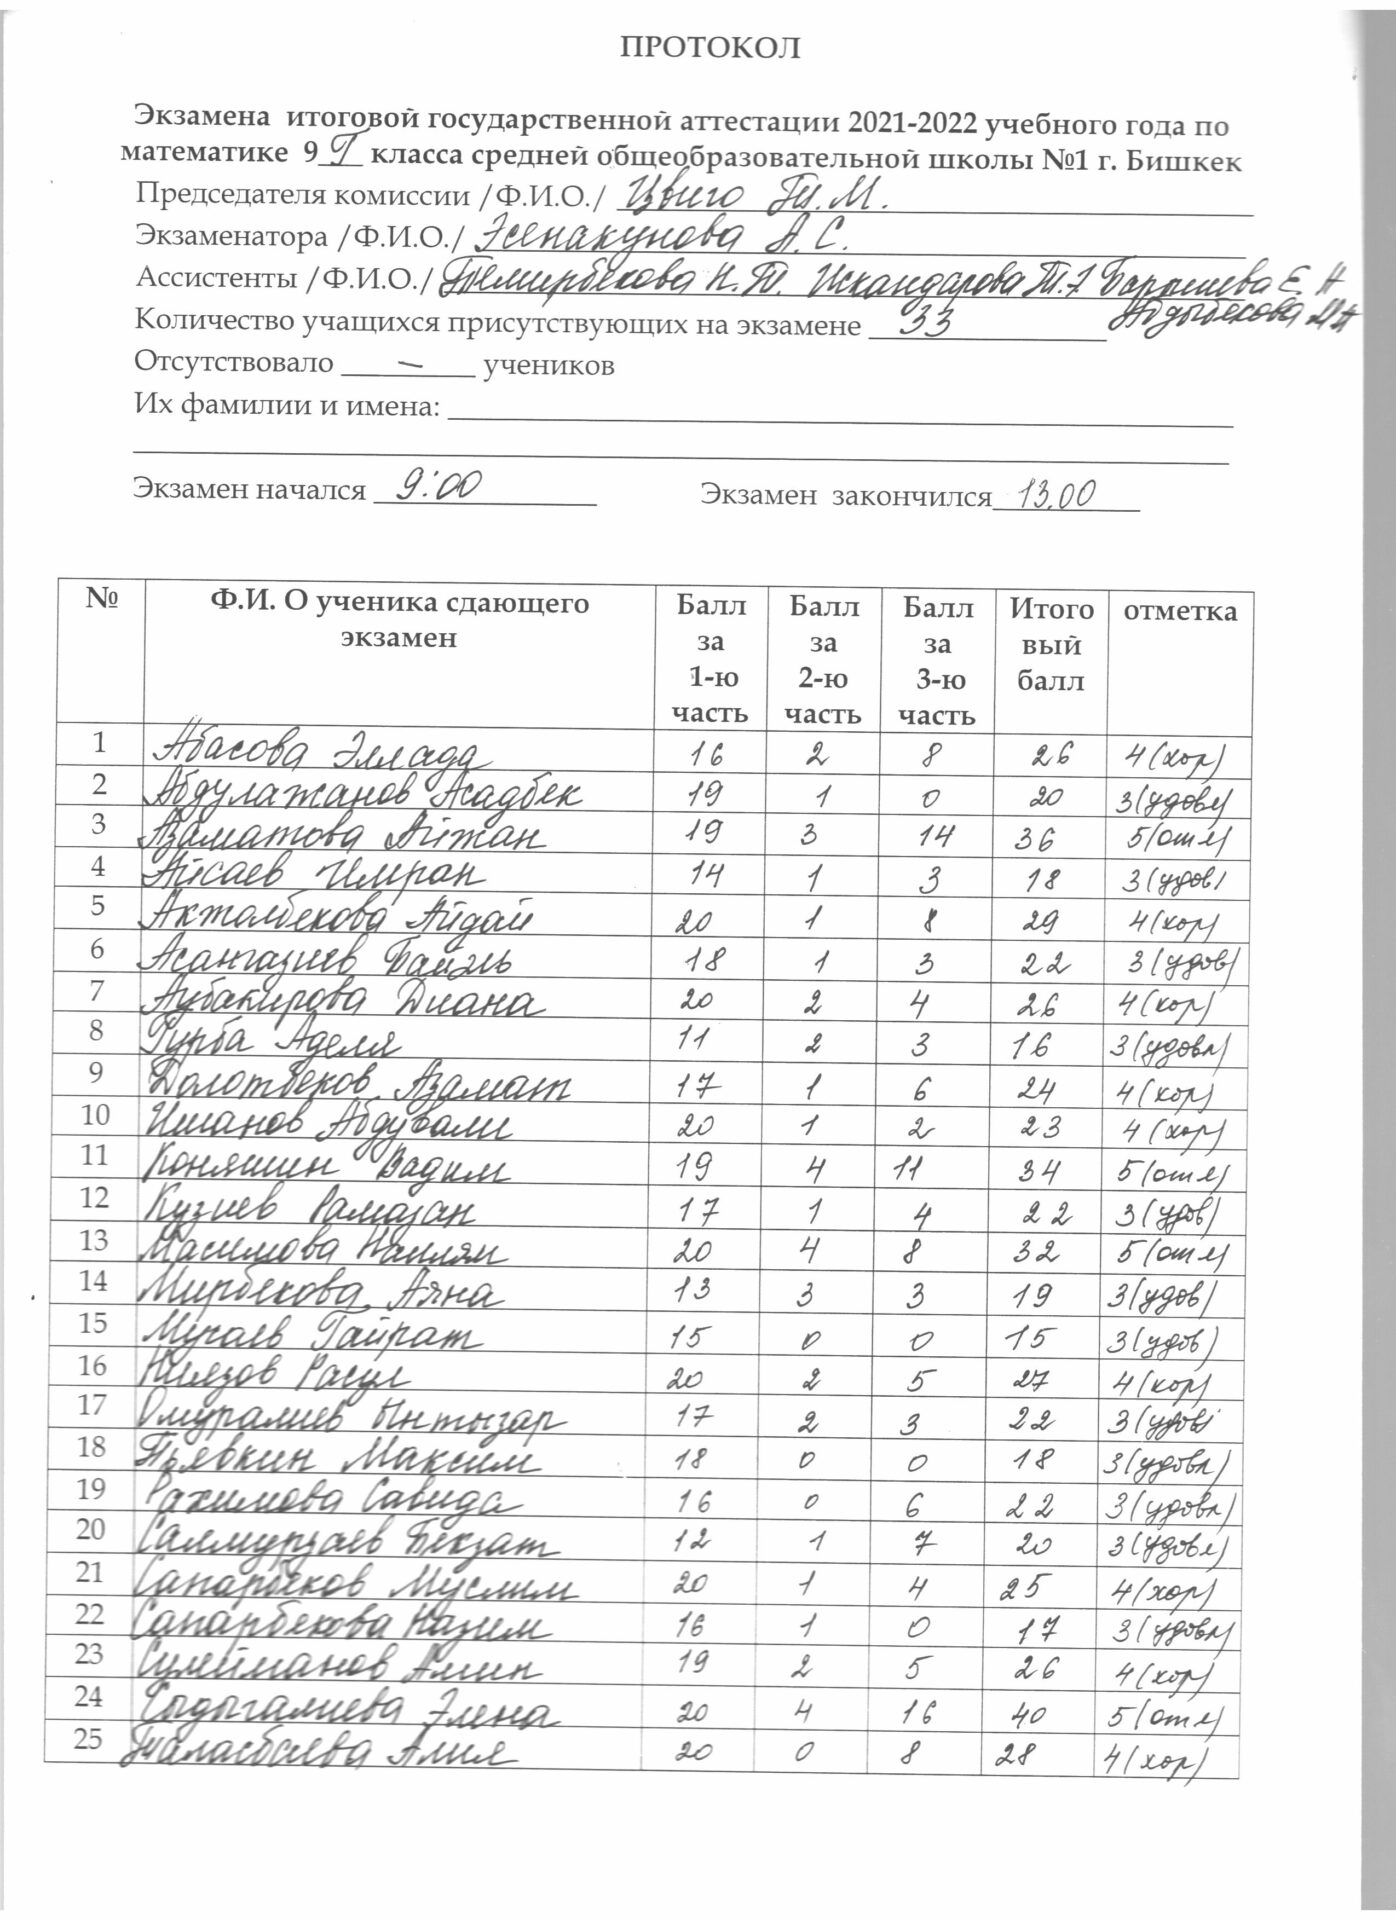 ПРОТОКОЛ
Экзамена итоговой государственной аттестации 2021-2022 учебного года по
математике 9 Г класса средней общеобразовательной школы №1 г. Бишкек
Председателя комиссии /Ф.И.О./ Цвиго М.
Экзаменатора /Ф.И.О./ Эсенакунова А.С.
Ассистенты /Ф.И.О./ Темирбекова Н.Т. Искандарова Е. Н
Количество учащихся присутствующих на экзамене 33 Абдыбекова
Отсутствовало — учеников
Их фамилии и имена:
Экзамен начался 9:00 Экзамен закончился 13.00
№ Ф.И. О ученика сдающего экзамен Балл за 1-ю часть Балл за 2-ю часть Балл за 3-ю часть Итого вый балл отметка
1 Абасова Эллада 16 2 8 26 4 (хор)
2 Абдулажанов Асадбек 19 1 0 20 3 (удовл)
3 Азаматова Айжан 19 3 14 36 5 (отл)
4 Айсаев Имран 14 1 3 18 3 (удов)
5 Акталбекова Айдай 20 1 8 29 4 (хор)
6 Асангазиев Байэль 18 1 3 22 3 (удов)
7 Аубакирова Диана 20 2 4 26 4 (хор)
8 Гурба Аделя 11 2 3 16 3 (удовл)
9 Болотбеков Азамат 17 1 6 24 4 (хор)
10 Ишанов Абдували 20 1 2 23 4 (хор)
11 Коняшин Вадим 19 4 11 34 5 (отл)
12 Кузиев Рамазан 17 1 4 22 3 (удов)
13 Масимова 20 4 8 32 5 (отл)
14 Мирбекова Аяна 13 3 3 19 3 (удов)
15 Гайрат 15 0 0 15 3 (удов)
16 Ниязов Расул 20 2 5 27 4 (хор)
17 Омуралиев Ынтызар 17 2 3 22 3 (удов)
18 Пьявкин Максим 18 0 0 18 3 (удовл)
19 Рахимова Савида 16 0 6 22 3 (удовл)
20 Салмурзаев Бекзат 12 1 7 20 3 (удовл)
21 Сапарбеков Муслим 20 1 4 25 4 (хор)
22 Сапарбекова Назим 16 1 0 17 3 (удовл)
23 Сулейманов Амин 19 2 5 26 4 (хор)
24 Сыдыгалиева Элена 20 4 16 40 5 (отл)
25 Таласбаева Алия 20 0 8 28 4 (хор)